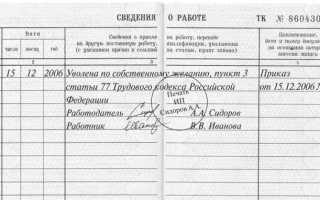 СВЕДЕНИЯ О РАБОТЕ ТК № 860430
Дата
Сведения о приеме
на другую постоянную работу,
на работу, переводе
квалификации, увольнении
(с указанием причин и ссылкой
на статью, пункт закона)
число месяц год
1 2 3
15 12 2006 Уволена по собственному желанию, пункт 3 Приказ
статьи 77 Трудового кодекса Российской от 15.12.2006
Федерации
Печать
ИП
Сидоров А.А.
Работодатель А.А. Сидоров
Работник В.В. Иванова